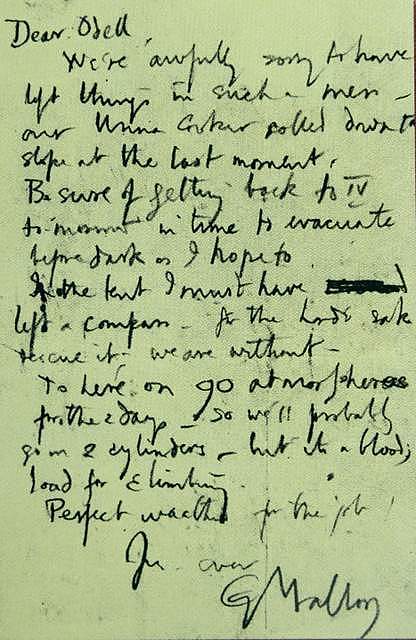 Dear Odell,
We're awfully sorry to have
left things in such a mess –
our Unna Cooker rolled down the
slope at the last moment.
Be sure of getting back to IV
to-morrow in time to evacuate
before dark as I hope to
In the tent I must have
left a compass – for the Lord's sake
rescue it – we are without –
To here on 90 atmospheres
for the 2 days – so we'll probably
go on 2 cylinders – but it's a bloody
load for climbing.
Perfect weather for the job!
Yrs ever
G Mallory